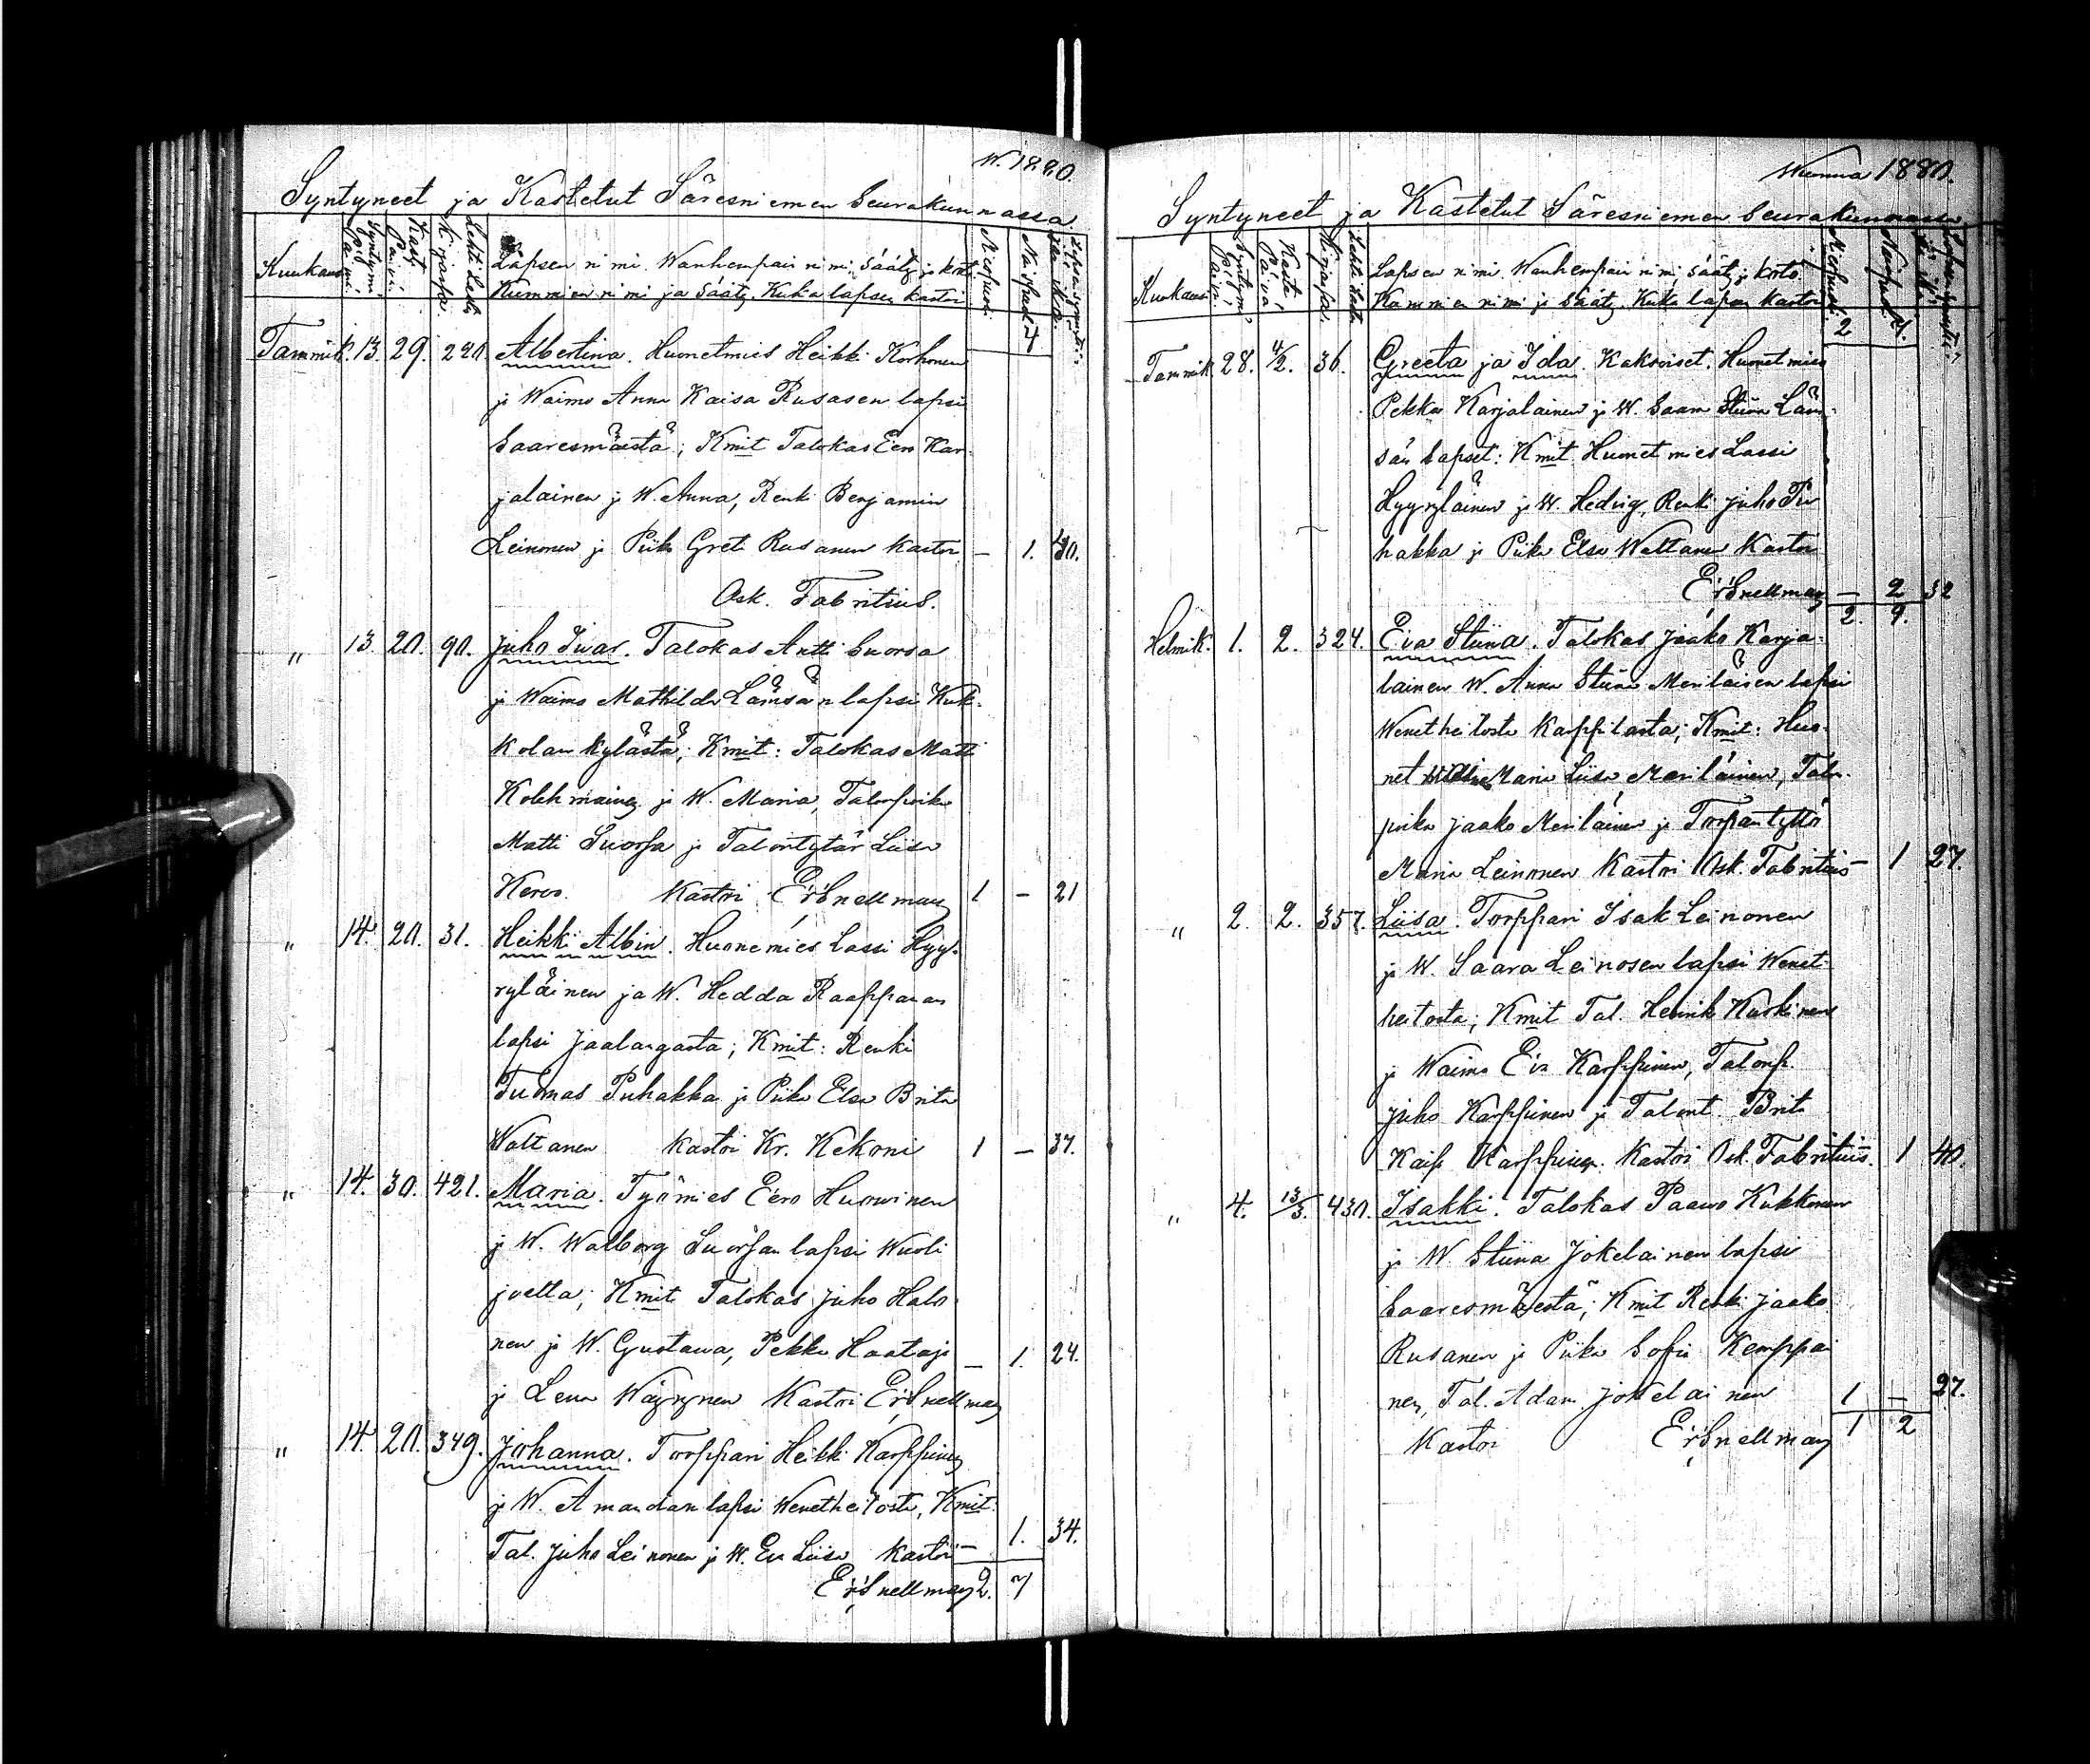 W. 1880.
Syntyneet ja Kastetut Säresniemen Seurakunnassa
Kuukausi
Syntymä päivä
Kaste Päivä
Lehti Lasten Kirjassa
Lapsen nimi. Wanhempain nimi, Sääty ja koti.
Kummien nimi ja Sääty. Kuka lapsen kastoi
Miespuoli
Naispuoli
Tammik. 13. 29. 240. Albertina. Huonetmies Heikki Korhonen
ja Waimo Anna Kaisa Rusasen lapsi
Saaresmäestä; Kmit Talokas Eero Kar-
jalainen ja W. Anna, Renki Benjamin
Leinonen ja Piika Greta Rusanen kastoi — 1. 40.
Osk. Fabritius.
" 13. 20. 90. Juho Iivar. Talokas Antti Suorsa
ja Waimo Mathilda Lämsän lapsi Kuk-
kolan kylästä; Kmit: Talokas Matti
Kolehmainen ja W. Maria, Talonpoika
Matti Suorsa ja Talontytär Liisa
Kervo. Kastoi Er. Snellman 1 — 21
" 14. 20. 31. Heikki Albin. Huonemies Lassi Hyy-
ryläinen ja W. Hedda Raappanan
lapsi Jaalangasta; Kmit: Renki
Tuomas Puhakka ja Piika Elsa Brita
Waltanen kastoi Kr. Kekoni 1 — 37.
" 14. 30. 421. Maria. Työmies Eero Huovinen
ja W. Walborg Suorsan lapsi Wuoli
joelta; Kmit Talokas Juho Halo
nen ja W. Gustawa, Pekka Haataja — 1. 24.
ja Lena Wäyrynen Kastoi Er. Snellman
" 14. 20. 349. Johanna. Torppari Heikki Karppinen
ja W. Amandan lapsi Wenetheitosta, Kmit.
Tal. Juho Leinonen ja W. Eva Liisa kastoi — 1. 34.
Er. Snellman 2. 7
Wuonna 1880.
Syntyneet ja Kastetut Säresniemen Seurakunnassa
Kuukausi
Syntymä päivä
Kaste Päivä
Lehti Lasten Kirjassa
Lapsen nimi Wanhempain nimi Sääty ja koto
Kummien nimi ja Sääty. Kuka lapsen kastoi
Miespuoli
Naispuoli
2 7.
Tammik. 28. 4/2. 36. Greeta ja Ida. Kaksoiset. Huonetmies
Pekka Karjalainen ja W. Saara Stiina Läm-
sän lapset: Kmit Huonetmies Lassi
Hyyryläinen ja W. Hedvig, Renki Juho Pu
hakka ja Piika Elsa Waltanen Kastoi
Er. Snellman — 2 32
2. 9.
Helmik. 1. 2. 324. Eva Stiina. Talokas Jaako Karja-
lainen W. Anna Stiina Meriläisen lapsi
Wenetheitosta Karppilasta; Kmit: Huo-
net Maria Liisa Meriläinen, Talon-
poika Jaako Meriläinen ja Torpantyttö
Maria Leinonen Kastoi Osk. Fabritius — 1 27.
" 2. 2. 357. Liisa. Torppari Isak Leinonen
ja W. Saara Leinosen lapsi Wenet-
heitosta; Kmit Tal. Henrik Karkinen
ja Waimo Eva Karppinen, Talonp.
Juho Karppinen ja Talont. Brita
Kaisa Karppinen. Kastoi Osk. Fabritius. — 1 40.
" 4. 13/3. 430. Isakki. Talokas Paavo Kukkonen
ja W Stiina Jokelainen lapsi
Saaresmäestä; Kmit Renki Jaako
Rusanen ja Piika Sofia Kemppai
nen, Tal. Adam Jokelainen 1 — 27.
Kastoi Er. Snellman 1 2